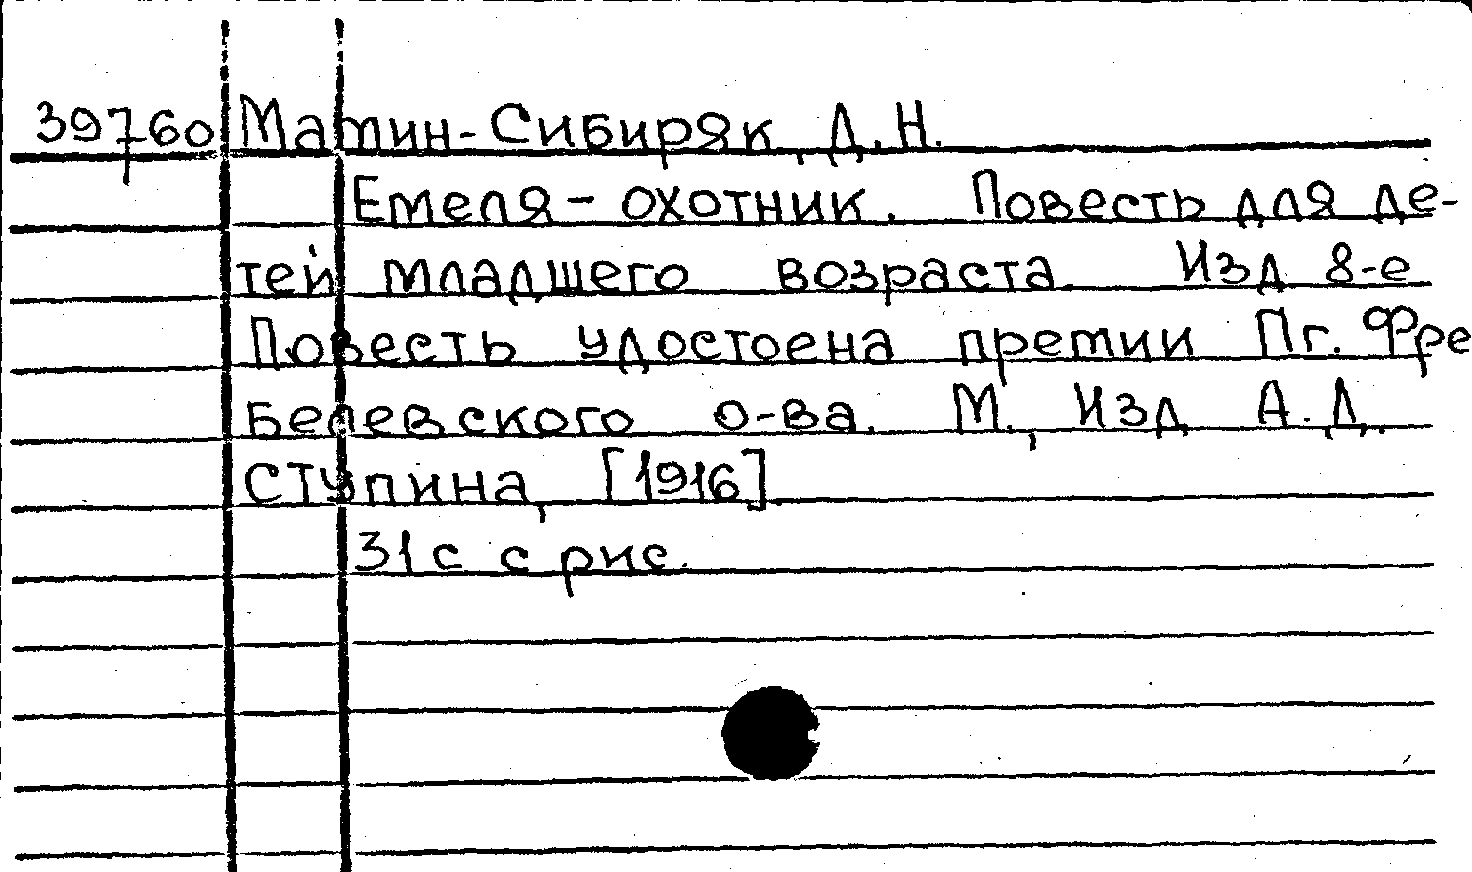 39760 Мамин-Сибиряк, Д.Н.
Емеля-охотник. Повесть для де-
тей младшего возраста. Изд 8-е
Повесть удостоена премии Пг. Фре
белевского о-ва. М., Изд А.Д.
Ступина, [1916].
31с с рис.